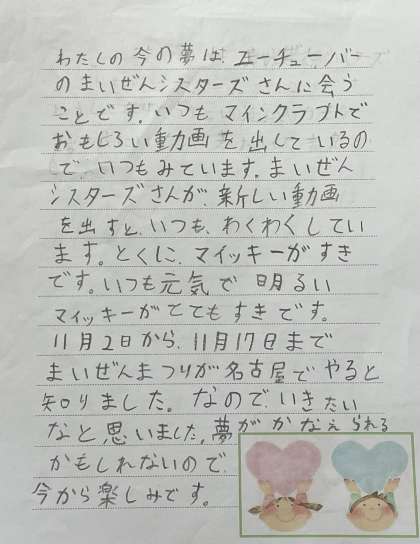 わたしの今の夢は、ユーチューバー
のまいぜんシスターズさんに会う
ことです。いつも、マインクラフトで
おもしろい動画を出しているの
で、いつもみています。まいぜん
シスターズさんが、新しい動画
を出すと、いつも、わくわくしてい
ます。とくに、マイッキーがすき
です。いつも元気で明るい
マイッキーがとてもすきです。
11月2日から、11月17日まで
まいぜんまつりが名古屋でやると
知りました。なので、いきたい
なと思いました。夢がかなえられる
かもしれないので、
今から楽しみです。